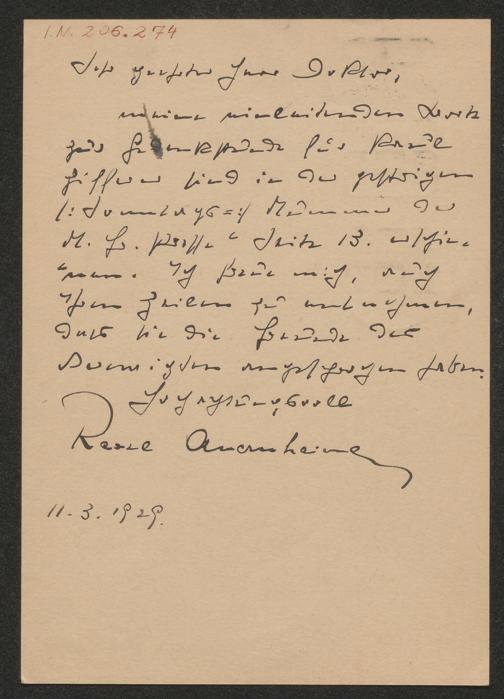 I.N. 206.274
Sehr geehrter Herr Doktor,
meine einleitenden Worte
zur Gedenkstunde für Paul
Zifferer sind in der gestrigen
/:Sonntags=:/ Nummer der
N. Fr. Presse" Seite 13. erschie-
nen. Ich freue mich, aus
Ihren Zeilen zu entnehmen,
dass sie die Freunde des
Verewigten angesprochen haben.
Hochachtungsvoll
Raoul Auernheimer
11.3.1929.